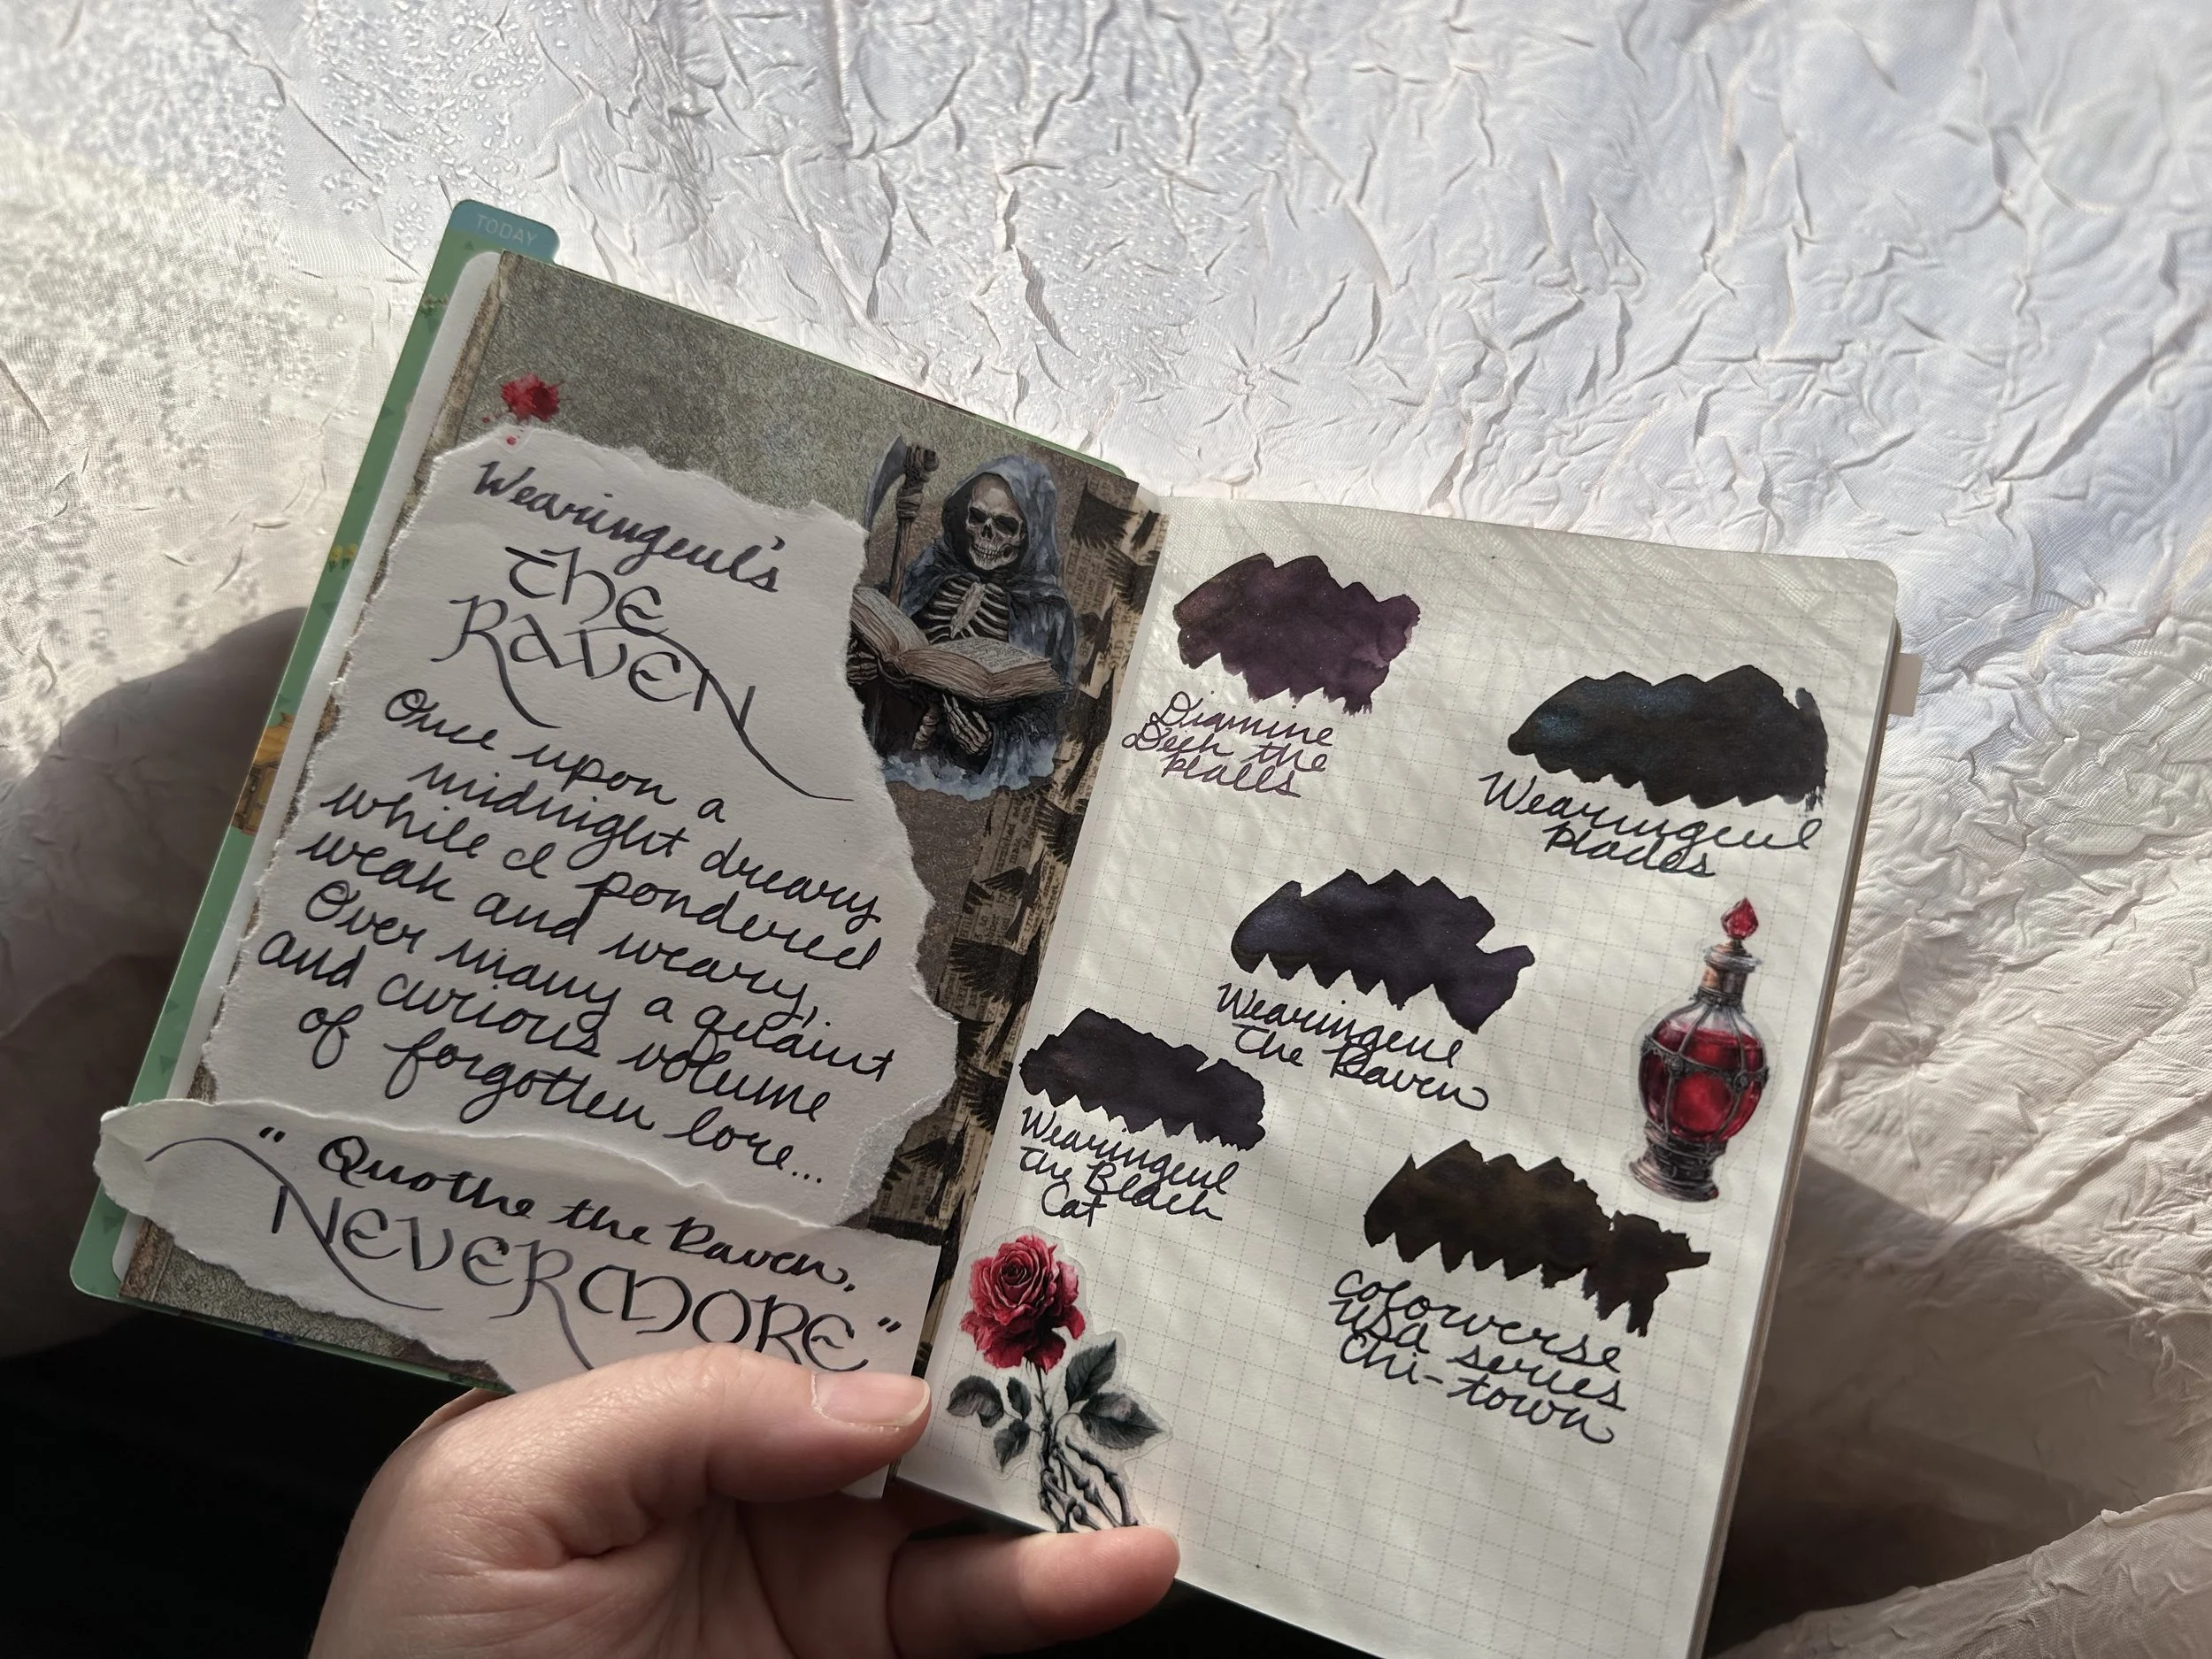 TODAY
Wearingeul's
THE
RAVEN
Once upon a
midnight dreary
while I pondered
weak and weary,
Over many a quaint
and curious volume
of forgotten lore...
"Quothe the Raven,
NEVERMORE"
Diamine
Deck the
Halls
Wearingeul
Hades
Wearingeul
The Raven
Wearingeul
The Black
Cat
Colorverse
USA series
Chi-town